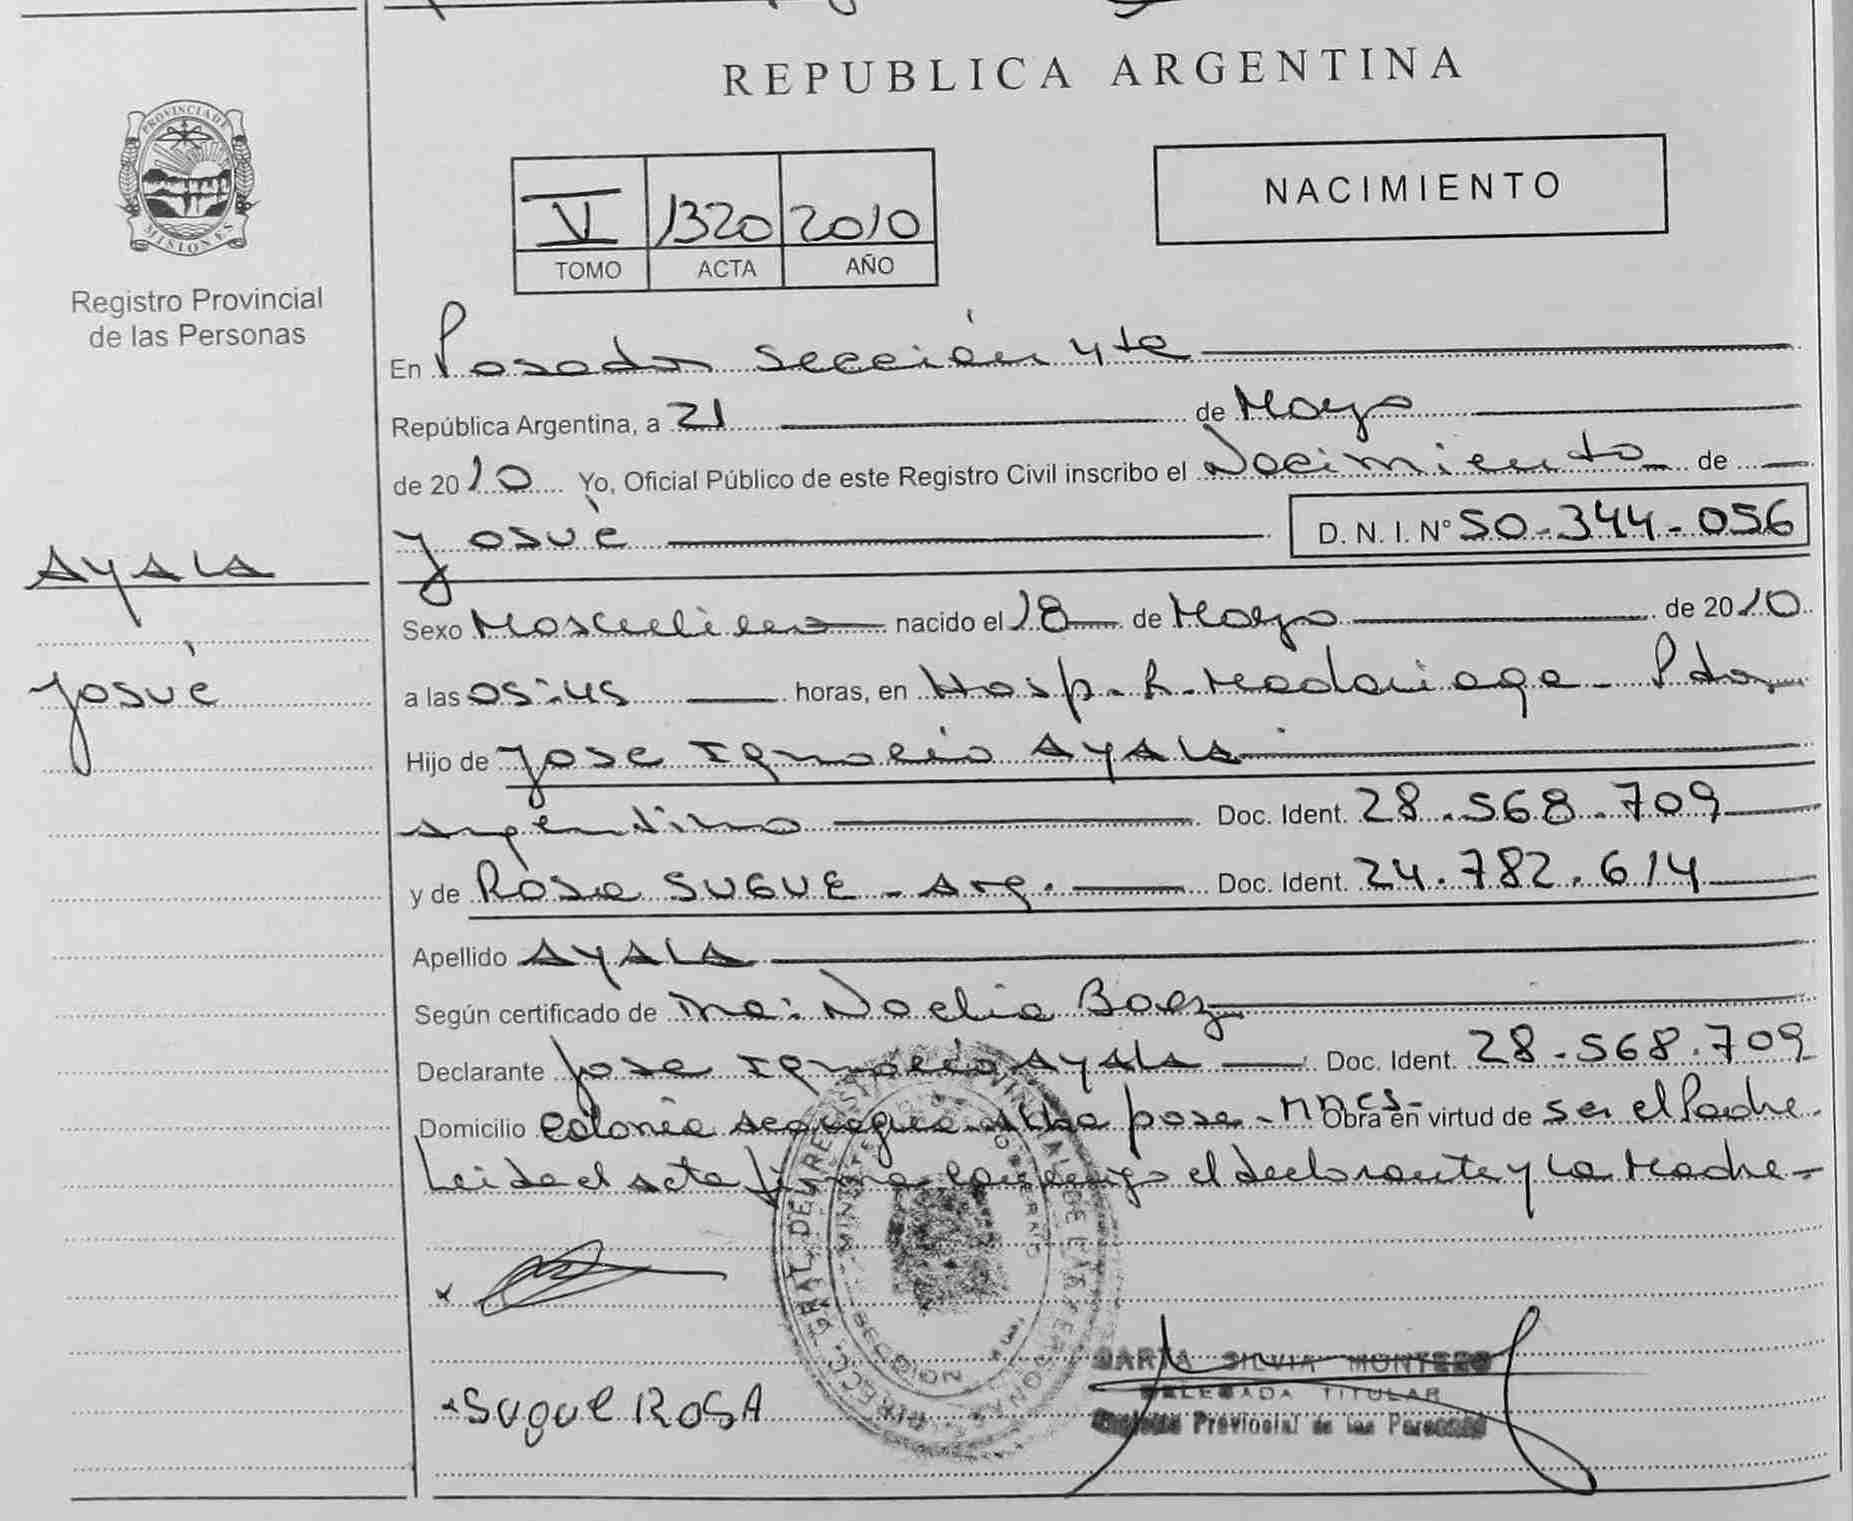 REPUBLICA ARGENTINA
PROVINCIA DE MISIONES
Registro Provincial
de las Personas
NACIMIENTO
V 1320 2010
TOMO ACTA AÑO
En Posadas sección 4ta
República Argentina, a 21 de Mayo
de 2010 Yo, Oficial Público de este Registro Civil inscribo el Nacimiento de
Josué D. N. I. N° 50-344-056
AYALA
Josué
Sexo Masculino nacido el 18 de Mayo de 2010
a las 05:45 horas, en Hosp. R. Madariaga - Pdas
Hijo de Jose Ignacio AYALA
Argentino Doc. Ident. 28.568.709
y de Rosa SUGUE - Arg. Doc. Ident. 24.782.614
Apellido AYALA
Según certificado de Ma: Noelia Baez
Declarante Jose Ignacio AYALA Doc. Ident. 28.568.709
Domicilio Colonia pose - Mnes - Obra en virtud de ser el Padre.
Leida el acta firma conmigo el declarante y la Madre -
x
x Sugue ROSA
SILVIA MONTERO
DELEGADA TITULAR
Provincial de las Personas